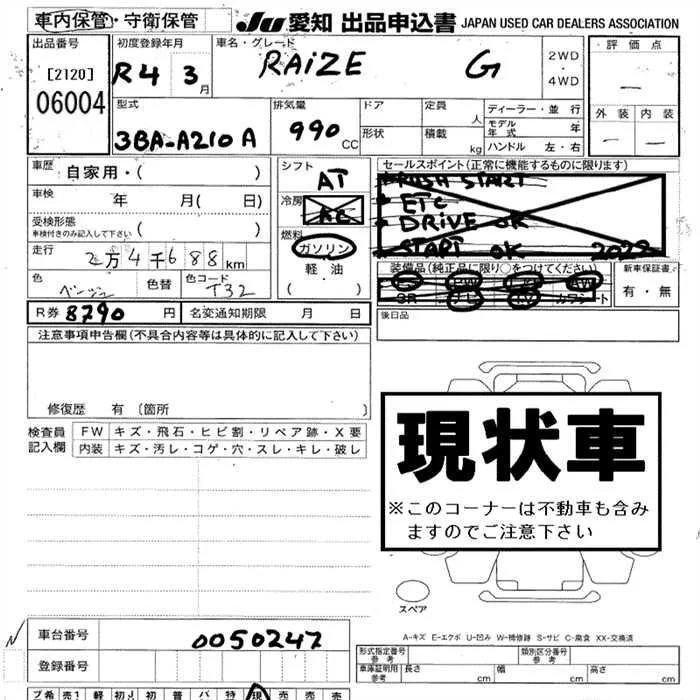 車内保管・守衛保管 JU 愛知 出品申込書 JAPAN USED CAR DEALERS ASSOCIATION
出品番号 初度登録年月 車名・グレード 2WD・4WD 評価点
[2120] R4 3月 RAIZE G —
06004
型式 排気量 ドア 定員 人 ディーラー・並行 外装 内装
3BA-A210A 990 CC 形状 積載 kg モデル年式 年 — —
ハンドル 左・右
車歴 自家用・( ) シフト AT セールスポイント(正常に機能するものに限ります)
車検 年 月( 日) 冷房 AC RUSH START
ETC
受検形態 ( ) DRIVE OK
車検付きのみ記入して下さい 燃料 START OK 2022
走行 2万4千688km ガソリン 装備品(純正品に限り○をつけてください) 新車保証書
軽油 SR ナビ TV カワシート 有・無
色 ベージュ 色替 色コード T32 ( )
R券 8790 円 名変通知期限 月 日 後日品
注意事項申告欄(不具合内容等は具体的に記入して下さい)
修復歴 有 〔箇所 〕
検査員 FW キズ・飛石・ヒビ割・リペア跡・X要
記入欄 内装 キズ・汚レ・コゲ・穴・スレ・キレ・破レ
現状車
※このコーナーは不動車も含み
ますのでご注意下さい
スペア
A-キズ E-エクボ U-凹み W-補修跡 S-サビ C-腐食 XX-交換済
車台番号 0050247
登録番号
形式指定番号 参考 類別区分番号 参考
車庫証明用 参考 長さ cm 幅 cm 高さ cm